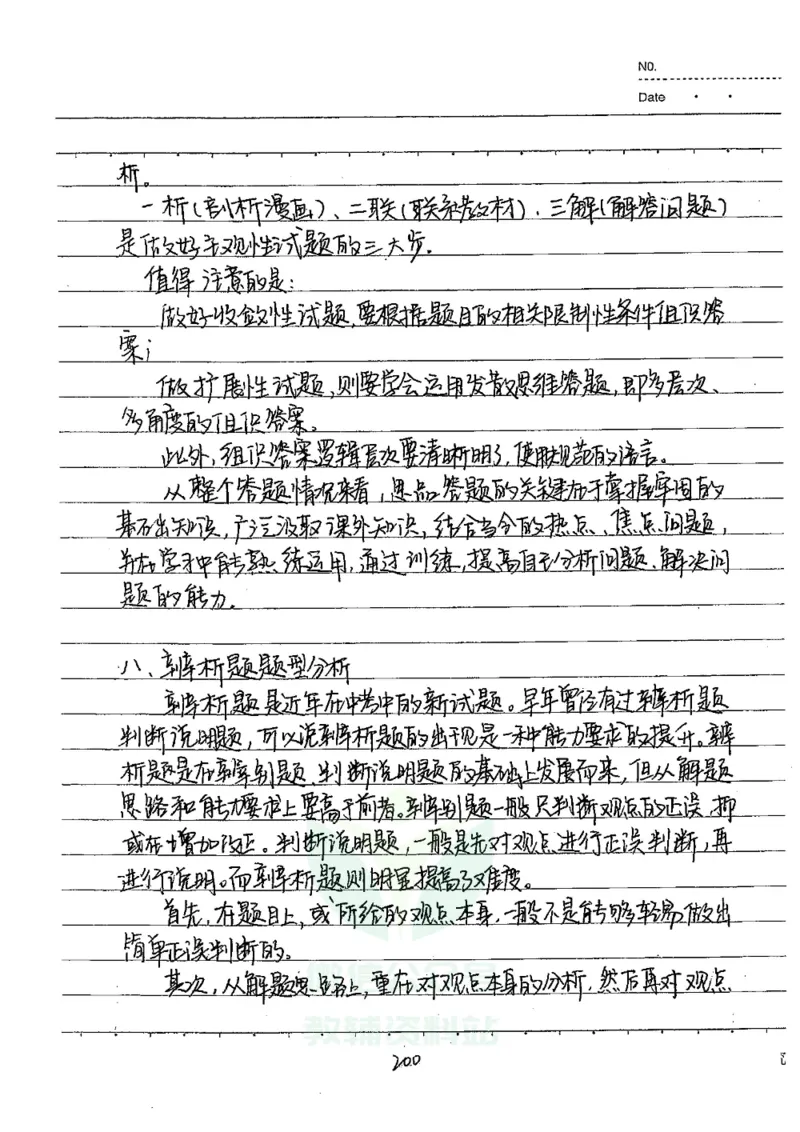 NO.
Date
析。
一析(剖析漫画)、二联(联系教材)、三解(解答问题)
是做好主观性试题的三大步。
值得注意的是:
做好收敛性试题,要根据题目的相关限制性条件组织答
案;
做扩展性试题,则要学会运用发散思维答题,即多层次、
多角度的组织答案。
此外,组织答案逻辑层次要清晰明了,使用规范的语言。
从整个答题情况来看,思品答题的关键在于掌握牢固的
基础知识,广泛汲取课外知识,结合当今的热点、焦点问题,
并在学习中能熟练运用,通过训练,提高自己分析问题、解决问
题的能力。
八、辨析题题型分析
辨析题是近年在中考中的新试题。早年曾经有过辨析题
判断说明题,可以说辨析题的出现是一种能力要求的提升。辨
析题是在辨别题、判断说明题的基础上发展而来,但从解题
思路和能力要求上要高于前者。辨别题一般只判断观点的正误,抑
或在增加改正。判断说明题,一般是先对观点进行正误判断,再
进行说明。而辨析题则明显提高了难度。
首先,在题目上,或所给的观点本身,一般不是能够轻易做出
简单正误判断的。
其次,从解题思路上,重在对观点本身的分析,然后再对观点
教辅资料站
200